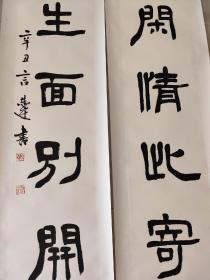 閑情此寄
生面別開
辛丑言蓮書